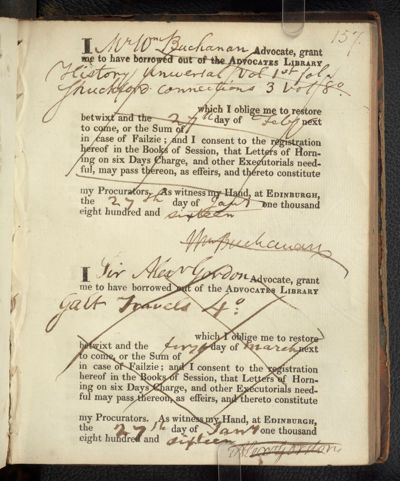 157.
I Mr Wm Buchanan Advocate, grant
me to have borrowed out of the ADVOCATES LIBRARY
History Universal Vol 1st fol.
Shuckford connections 3 Vol 8o.
which I oblige me to restore
betwixt and the 27th day of Feby next
to come, or the Sum of
in case of Failzie; and I consent to the registration
hereof in the Books of Session, that Letters of Horn-
ing on six Days Charge, and other Executorials need-
ful, may pass thereon, as effeirs, and thereto constitute
my Procurators. As witness my Hand, at EDINBURGH,
the 27th day of Jany one thousand
eight hundred and sixteen
Wm Buchanan
I Sir Alexr Gordon Advocate, grant
me to have borrowed out of the ADVOCATES LIBRARY
Galt Travels 4o.
which I oblige me to restore
betwixt and the first day of March next
to come, or the Sum of
in case of Failzie; and I consent to the registration
hereof in the Books of Session, that Letters of Horn-
ing on six Days Charge, and other Executorials need-
ful may pass thereon, as effeirs, and thereto constitute
my Procurators. As witness my Hand, at EDINBURGH,
the 27th day of Jany one thousand
eight hundred and sixteen
Gordon